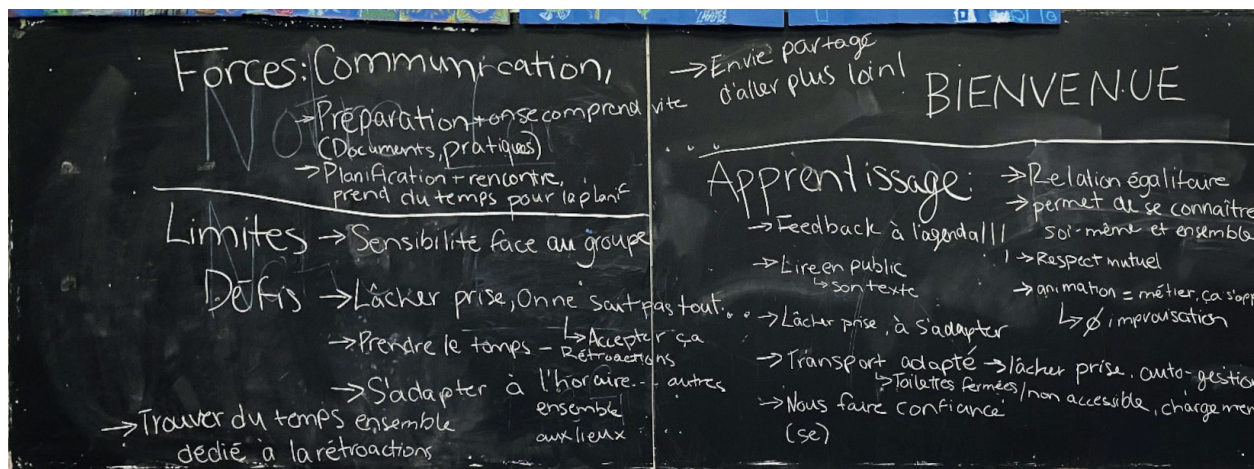 Forces: Communication,
→ Préparation + on se comprend vite
(Documents, pratiques)
→ Planification + rencontre,
prend du temps pour la planif
Limites → Sensibilité face au groupe
Défis → Lâcher prise, On ne sait pas tout...
↳ Accepter ça
→ Prendre le temps - Rétroactions
→ S'adapter à l'horaire... autres
ensemble
aux lieux
→ Trouver du temps ensemble
dédié à la rétroactions
→ Envie partagé
d'aller plus loin!
BIENVENUE
Apprentissage:
→ Feedback à l'agenda!!!
→ Lire en public
↳ son texte
→ Lâcher prise, à s'adapter
→ Transport adapté → lâcher prise, auto-gestion
↳ Toilettes fermées/non accessible,
→ Nous faire confiance
(se)
→ Relation égalitaire
→ permet de se connaître
soi-même et ensemble
→ Respect mutuel
→ animation = métier, ça
↳ ∅ improvisation